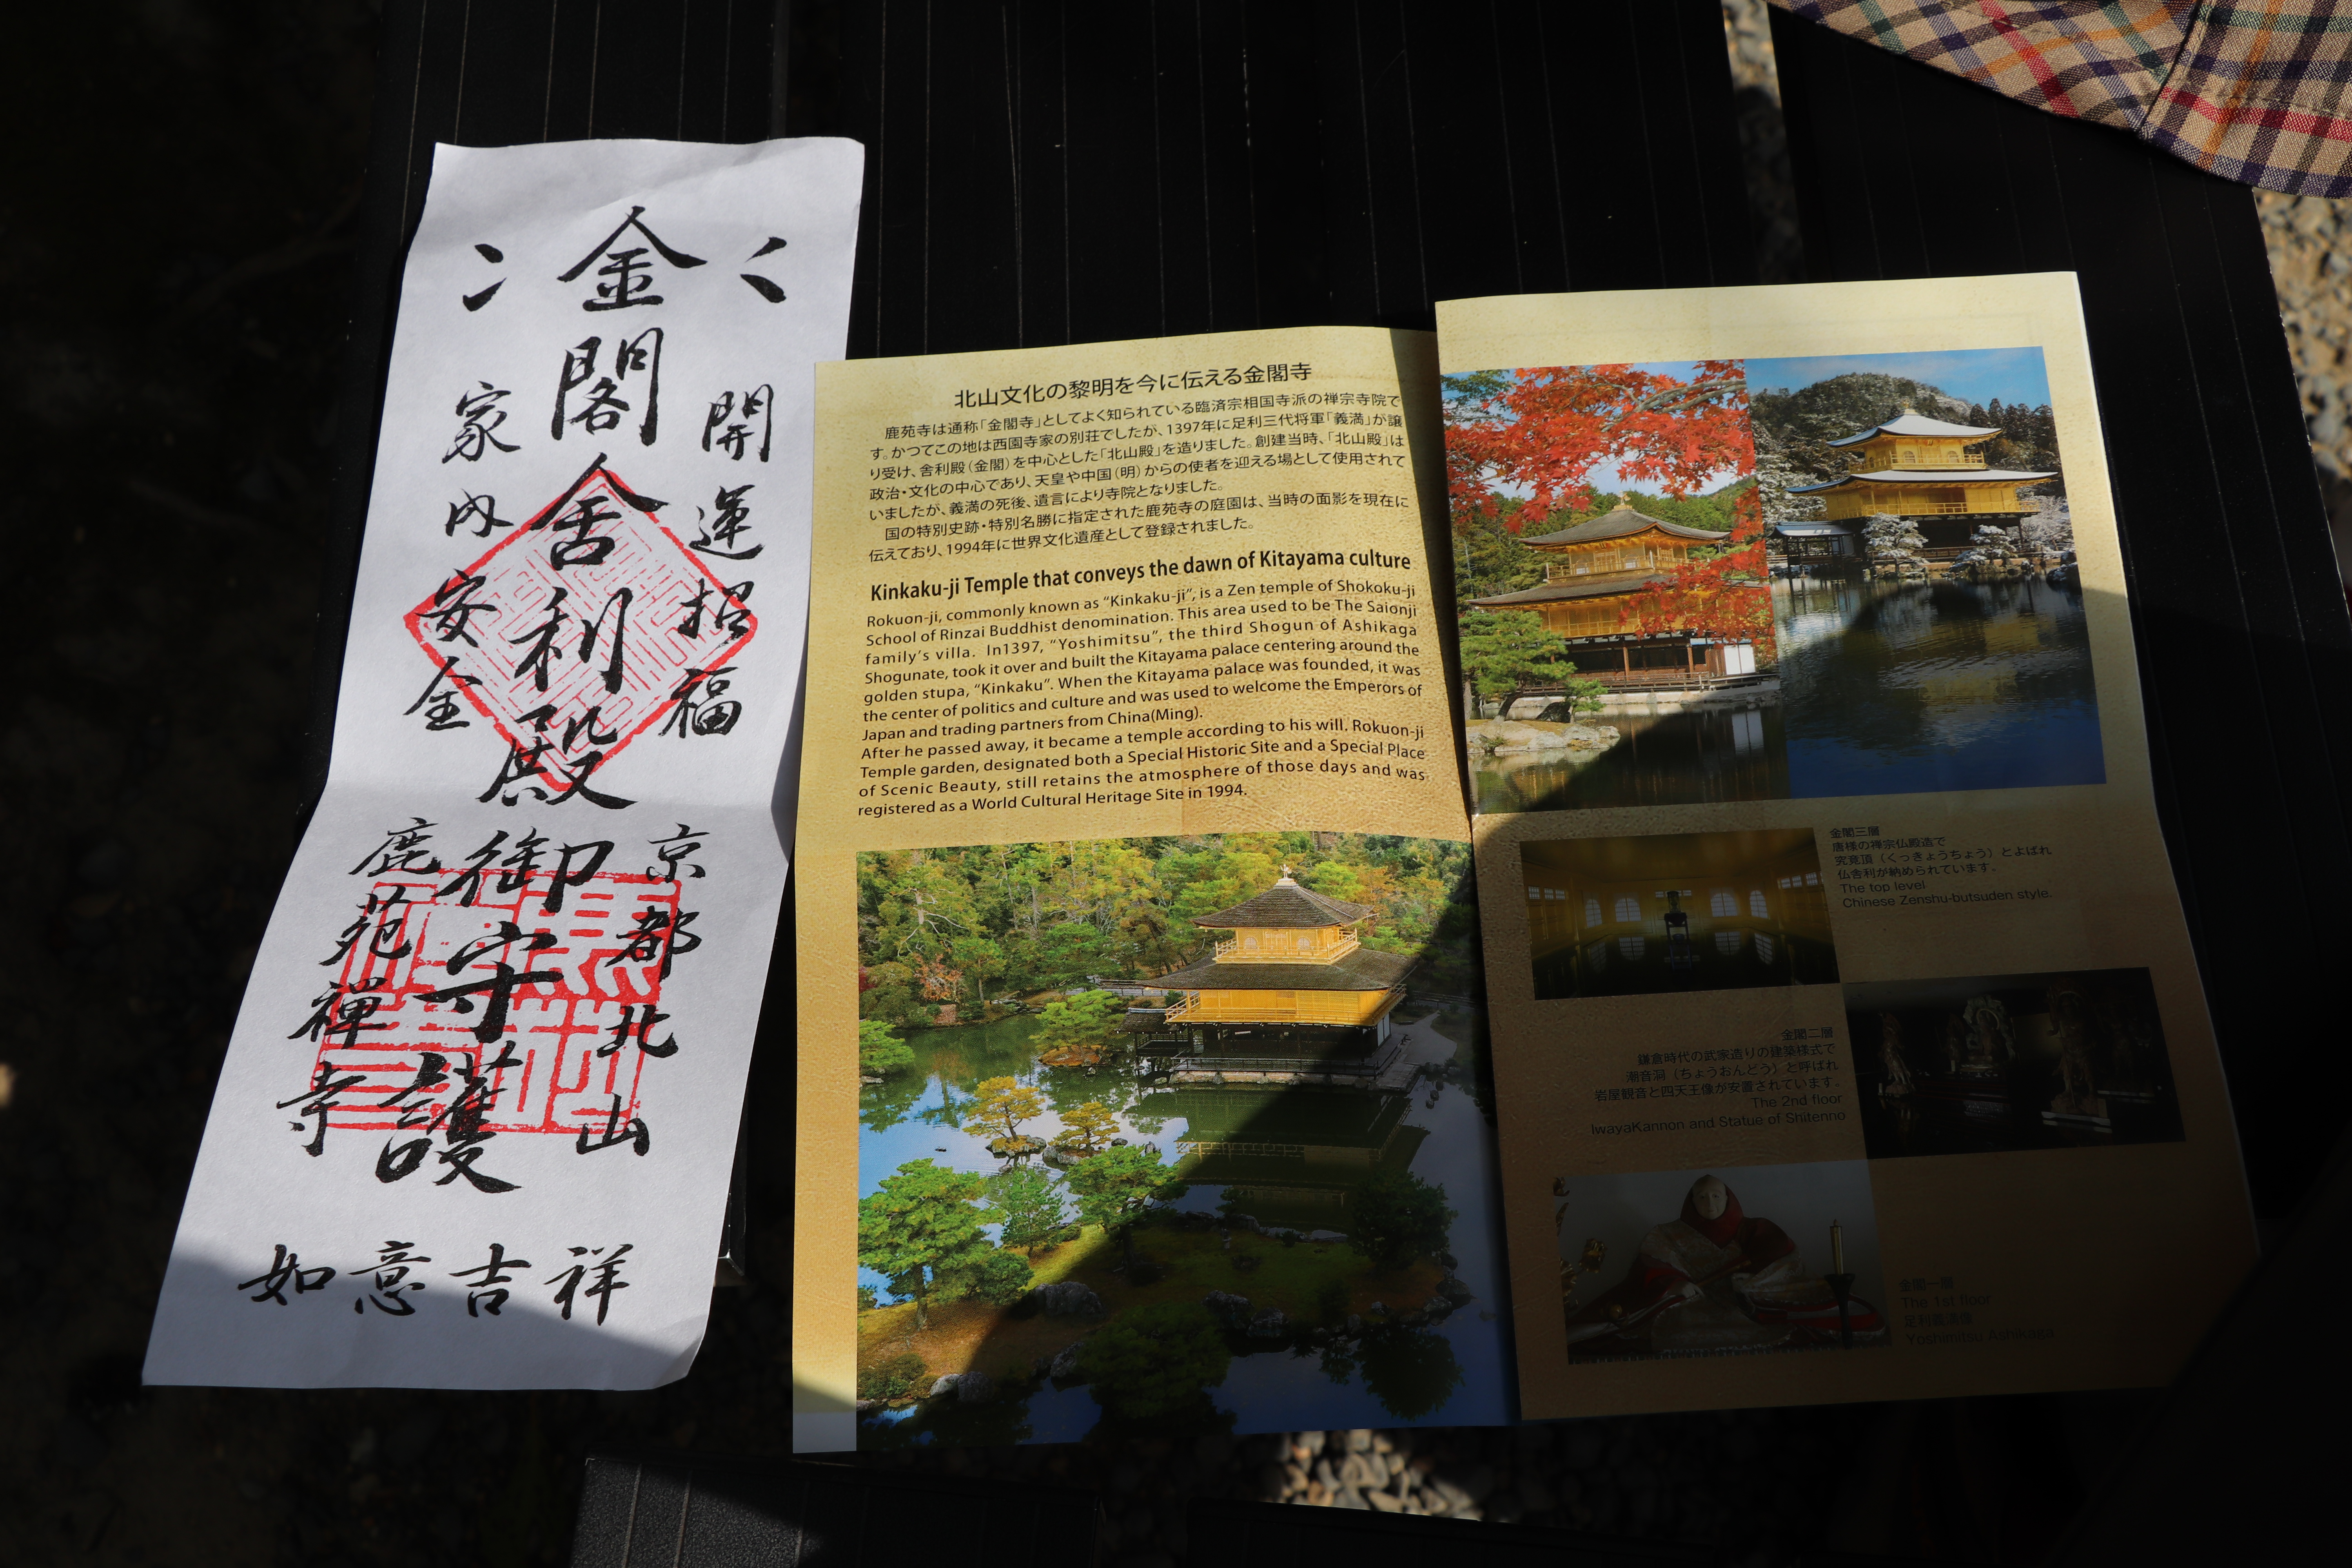 金閣舎利殿御守護
開運招福
家内安全
京都北山
鹿苑禅寺
如意吉祥
北山文化の黎明を今に伝える金閣寺
鹿苑寺は通称「金閣寺」としてよく知られている臨済宗相国寺派の禅宗寺院で
す。かつてこの地は西園寺家の別荘でしたが、1397年に足利三代将軍「義満」が譲
り受け、舎利殿（金閣）を中心とした「北山殿」を造りました。創建当時、「北山殿」は
政治・文化の中心であり、天皇や中国（明）からの使者を迎える場として使用されて
いましたが、義満の死後、遺言により寺院となりました。
国の特別史跡・特別名勝に指定された鹿苑寺の庭園は、当時の面影を現在に
伝えており、1994年に世界文化遺産として登録されました。
Kinkaku-ji Temple that conveys the dawn of Kitayama culture
Rokuon-ji, commonly known as “Kinkaku-ji”, is a Zen temple of Shokoku-ji
School of Rinzai Buddhist denomination. This area used to be The Saionji
family’s villa. In1397, “Yoshimitsu”, the third Shogun of Ashikaga
Shogunate, took it over and built the Kitayama palace centering around the
golden stupa, “Kinkaku”. When the Kitayama palace was founded, it was
the center of politics and culture and was used to welcome the Emperors of
Japan and trading partners from China(Ming).
After he passed away, it became a temple according to his will. Rokuon-ji
Temple garden, designated both a Special Historic Site and a Special Place
of Scenic Beauty, still retains the atmosphere of those days and was
registered as a World Cultural Heritage Site in 1994.
金閣三層
唐様の禅宗仏殿造で
究竟頂（くっきょうちょう）とよばれ
仏舎利が納められています。
The top level
Chinese Zenshu-butsuden style.
金閣二層
鎌倉時代の武家造りの建築様式で
潮音洞（ちょうおんどう）と呼ばれ
岩屋観音と四天王像が安置されています。
The 2nd floor
IwayaKannon and Statue of Shitenno
金閣一層
The 1st floor
足利義満像
Yoshimitsu Ashikaga